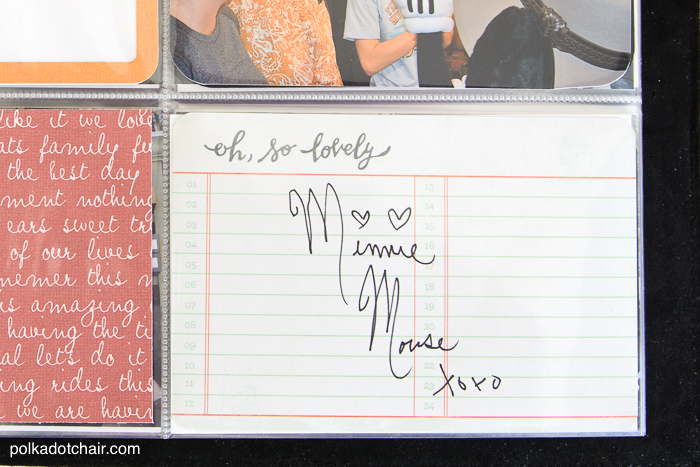 oh, so lovely
Minnie
Mouse
xoxo
01
02
03
04
05
06
07
08
09
10
11
12
13
14
15
16
18
19
20
21
22
23
24
like it we love
ats family fu
the best day
ment nothing
ears sweet tr
of our lives
memer this m
is amazing
having the ti
al let's do it
ing rides this
we are havin
polkadotchair.com